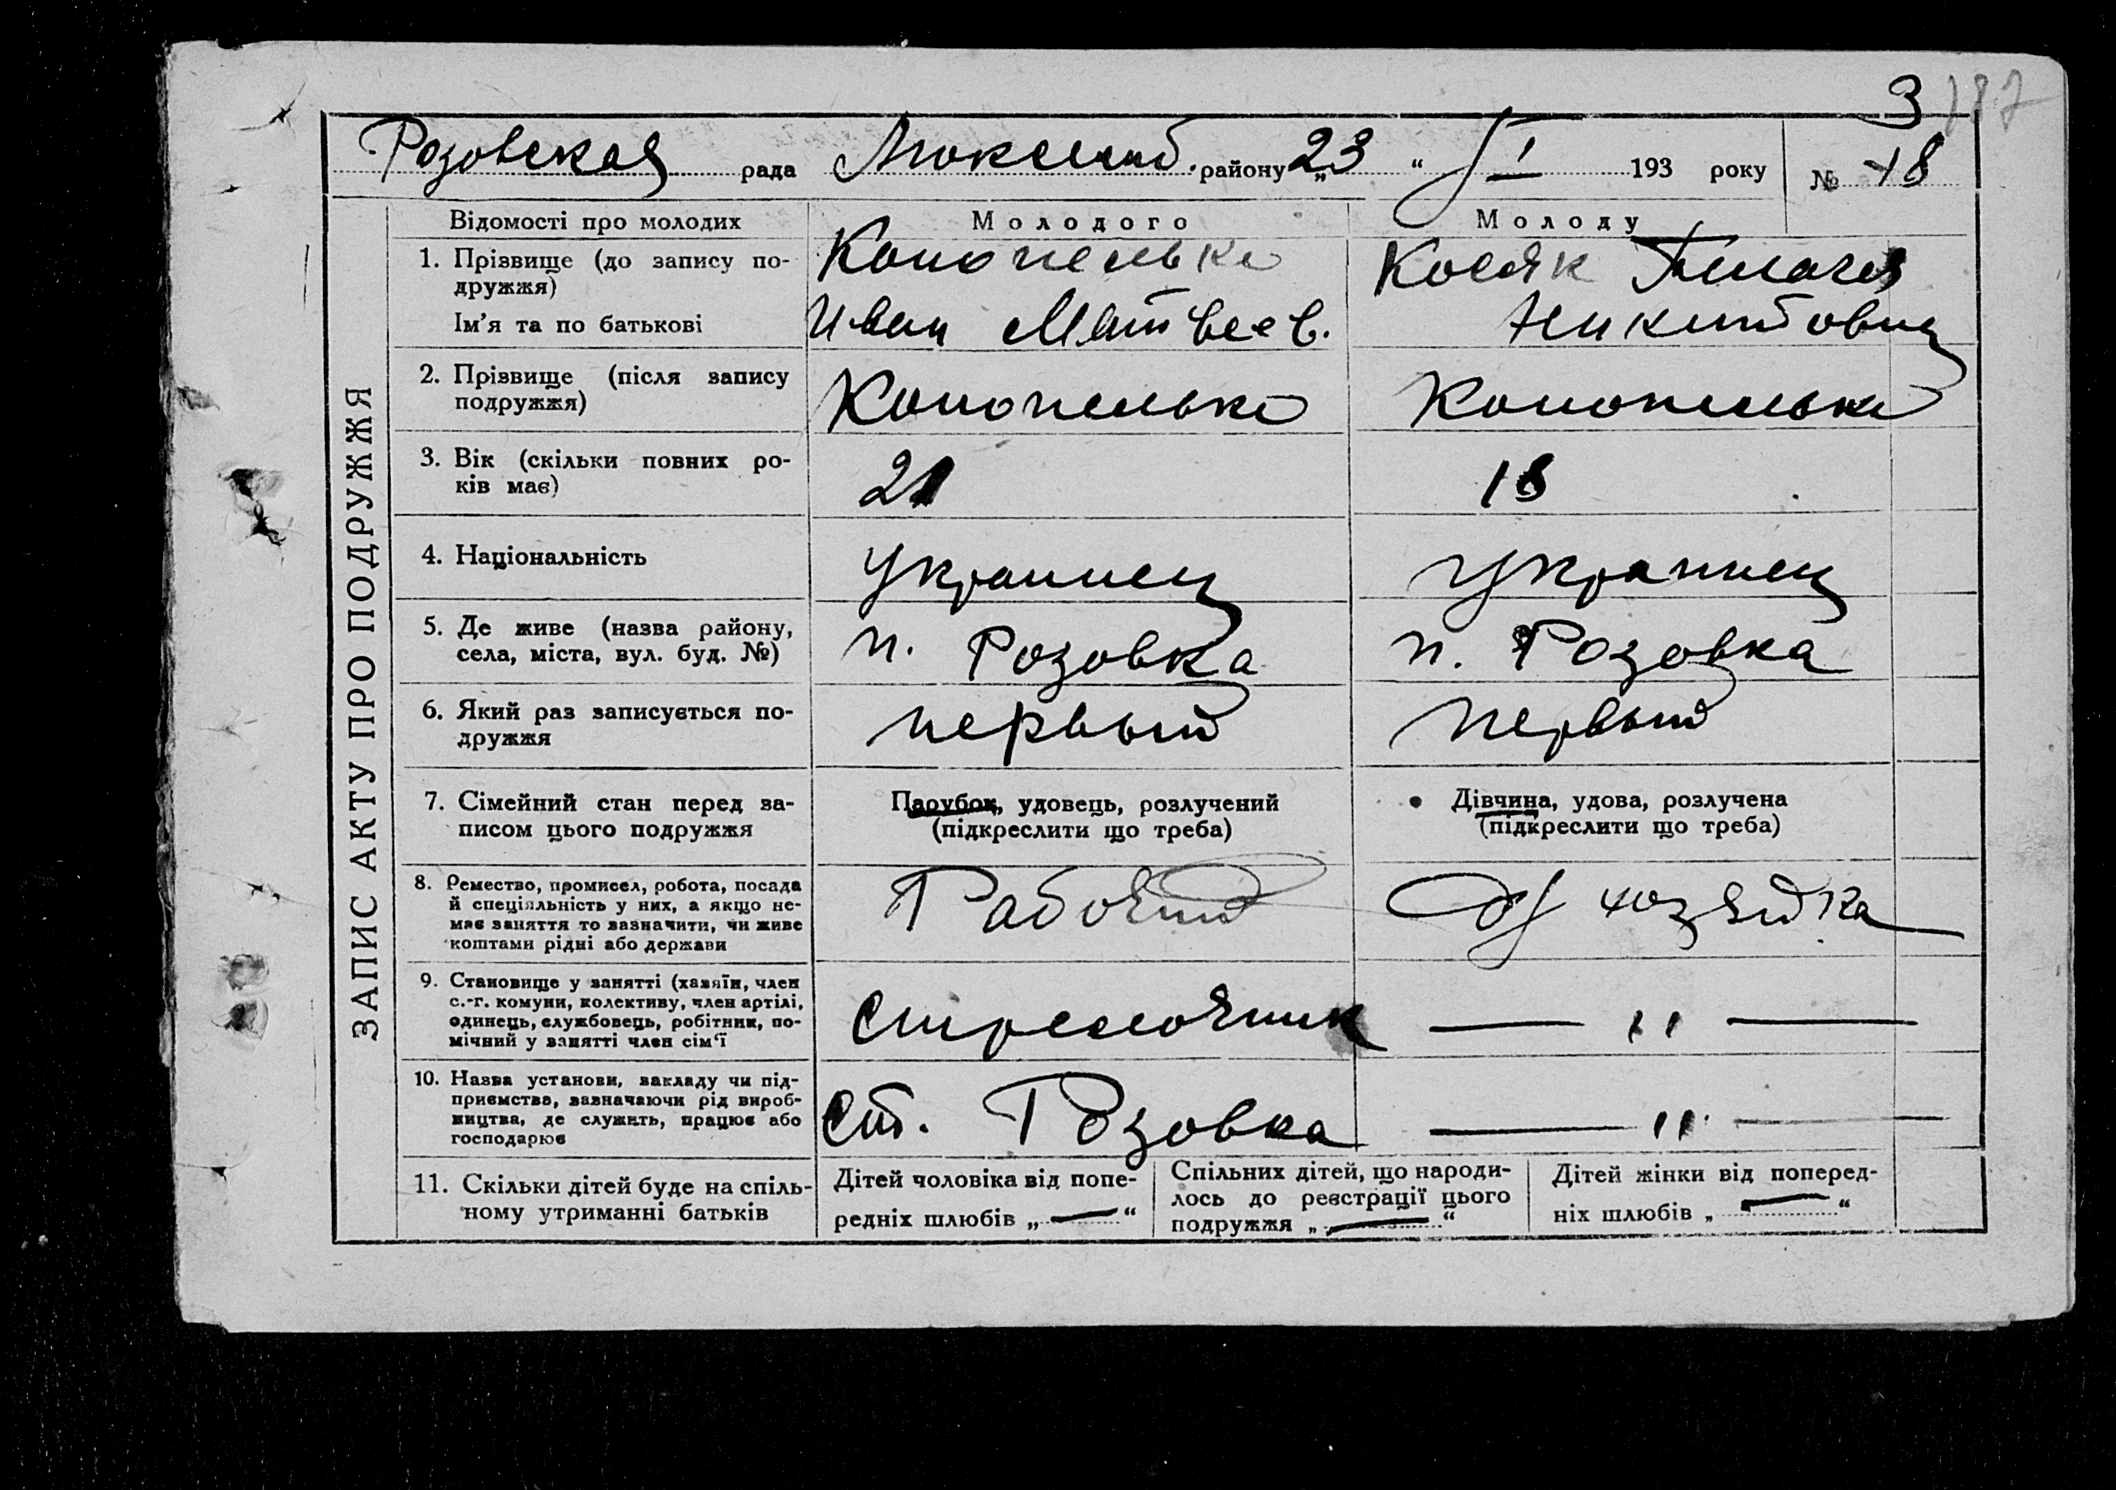 3 187
Розовская рада Люксемб. району „23“ VI 193 року № 18
ЗАПИС АКТУ ПРО ПОДРУЖЖЯ
Відомості про молодих Молодого Молоду
1. Прізвище (до запису по-
дружжя)
Конопелько Косяк Пелагея
Ім'я та по батькові
Иван Матвеев. Никитовна
2. Прізвище (після запису
подружжя)
Конопелько Конопелько
3. Вік (скільки повних ро-
ків має)
21 18
4. Національність
Украинец Украинец
5. Де живе (назва району,
села, міста, вул. буд. №)
п. Розовка п. Розовка
6. Який раз записується по-
дружжя
первый первый
7. Сімейний стан перед за-
писом цього подружжя
Парубок, удовець, розлучений
(підкреслити що треба)
Дівчина, удова, розлучена
(підкреслити що треба)
8. Ремество, промисел, робота, посада
й спеціяльність у них, а якщо не-
має заняття то зазначити, чи живе
коштами рідні або держави
Рабочий Д хозяйка
9. Становище у занятті (хазяїн, член
с.-г. комуни, колективу, член артілі,
одинець, службовець, робітник, по-
мічний у занятті член сім'ї
Стрелочник — 〃 —
10. Назва установи, закладу чи під-
приємства, зазначаючи рід вироб-
ництва, де служить, працює або
господарює
ст. Розовка — 〃 —
11. Скільки дітей буде на спіль-
ному утриманні батьків
Дітей чоловіка від попе-
редніх шлюбів „—“
Спільних дітей, що народи-
лось до реєстрації цього
подружжя „—“
Дітей жінки від поперед-
ніх шлюбів „—“